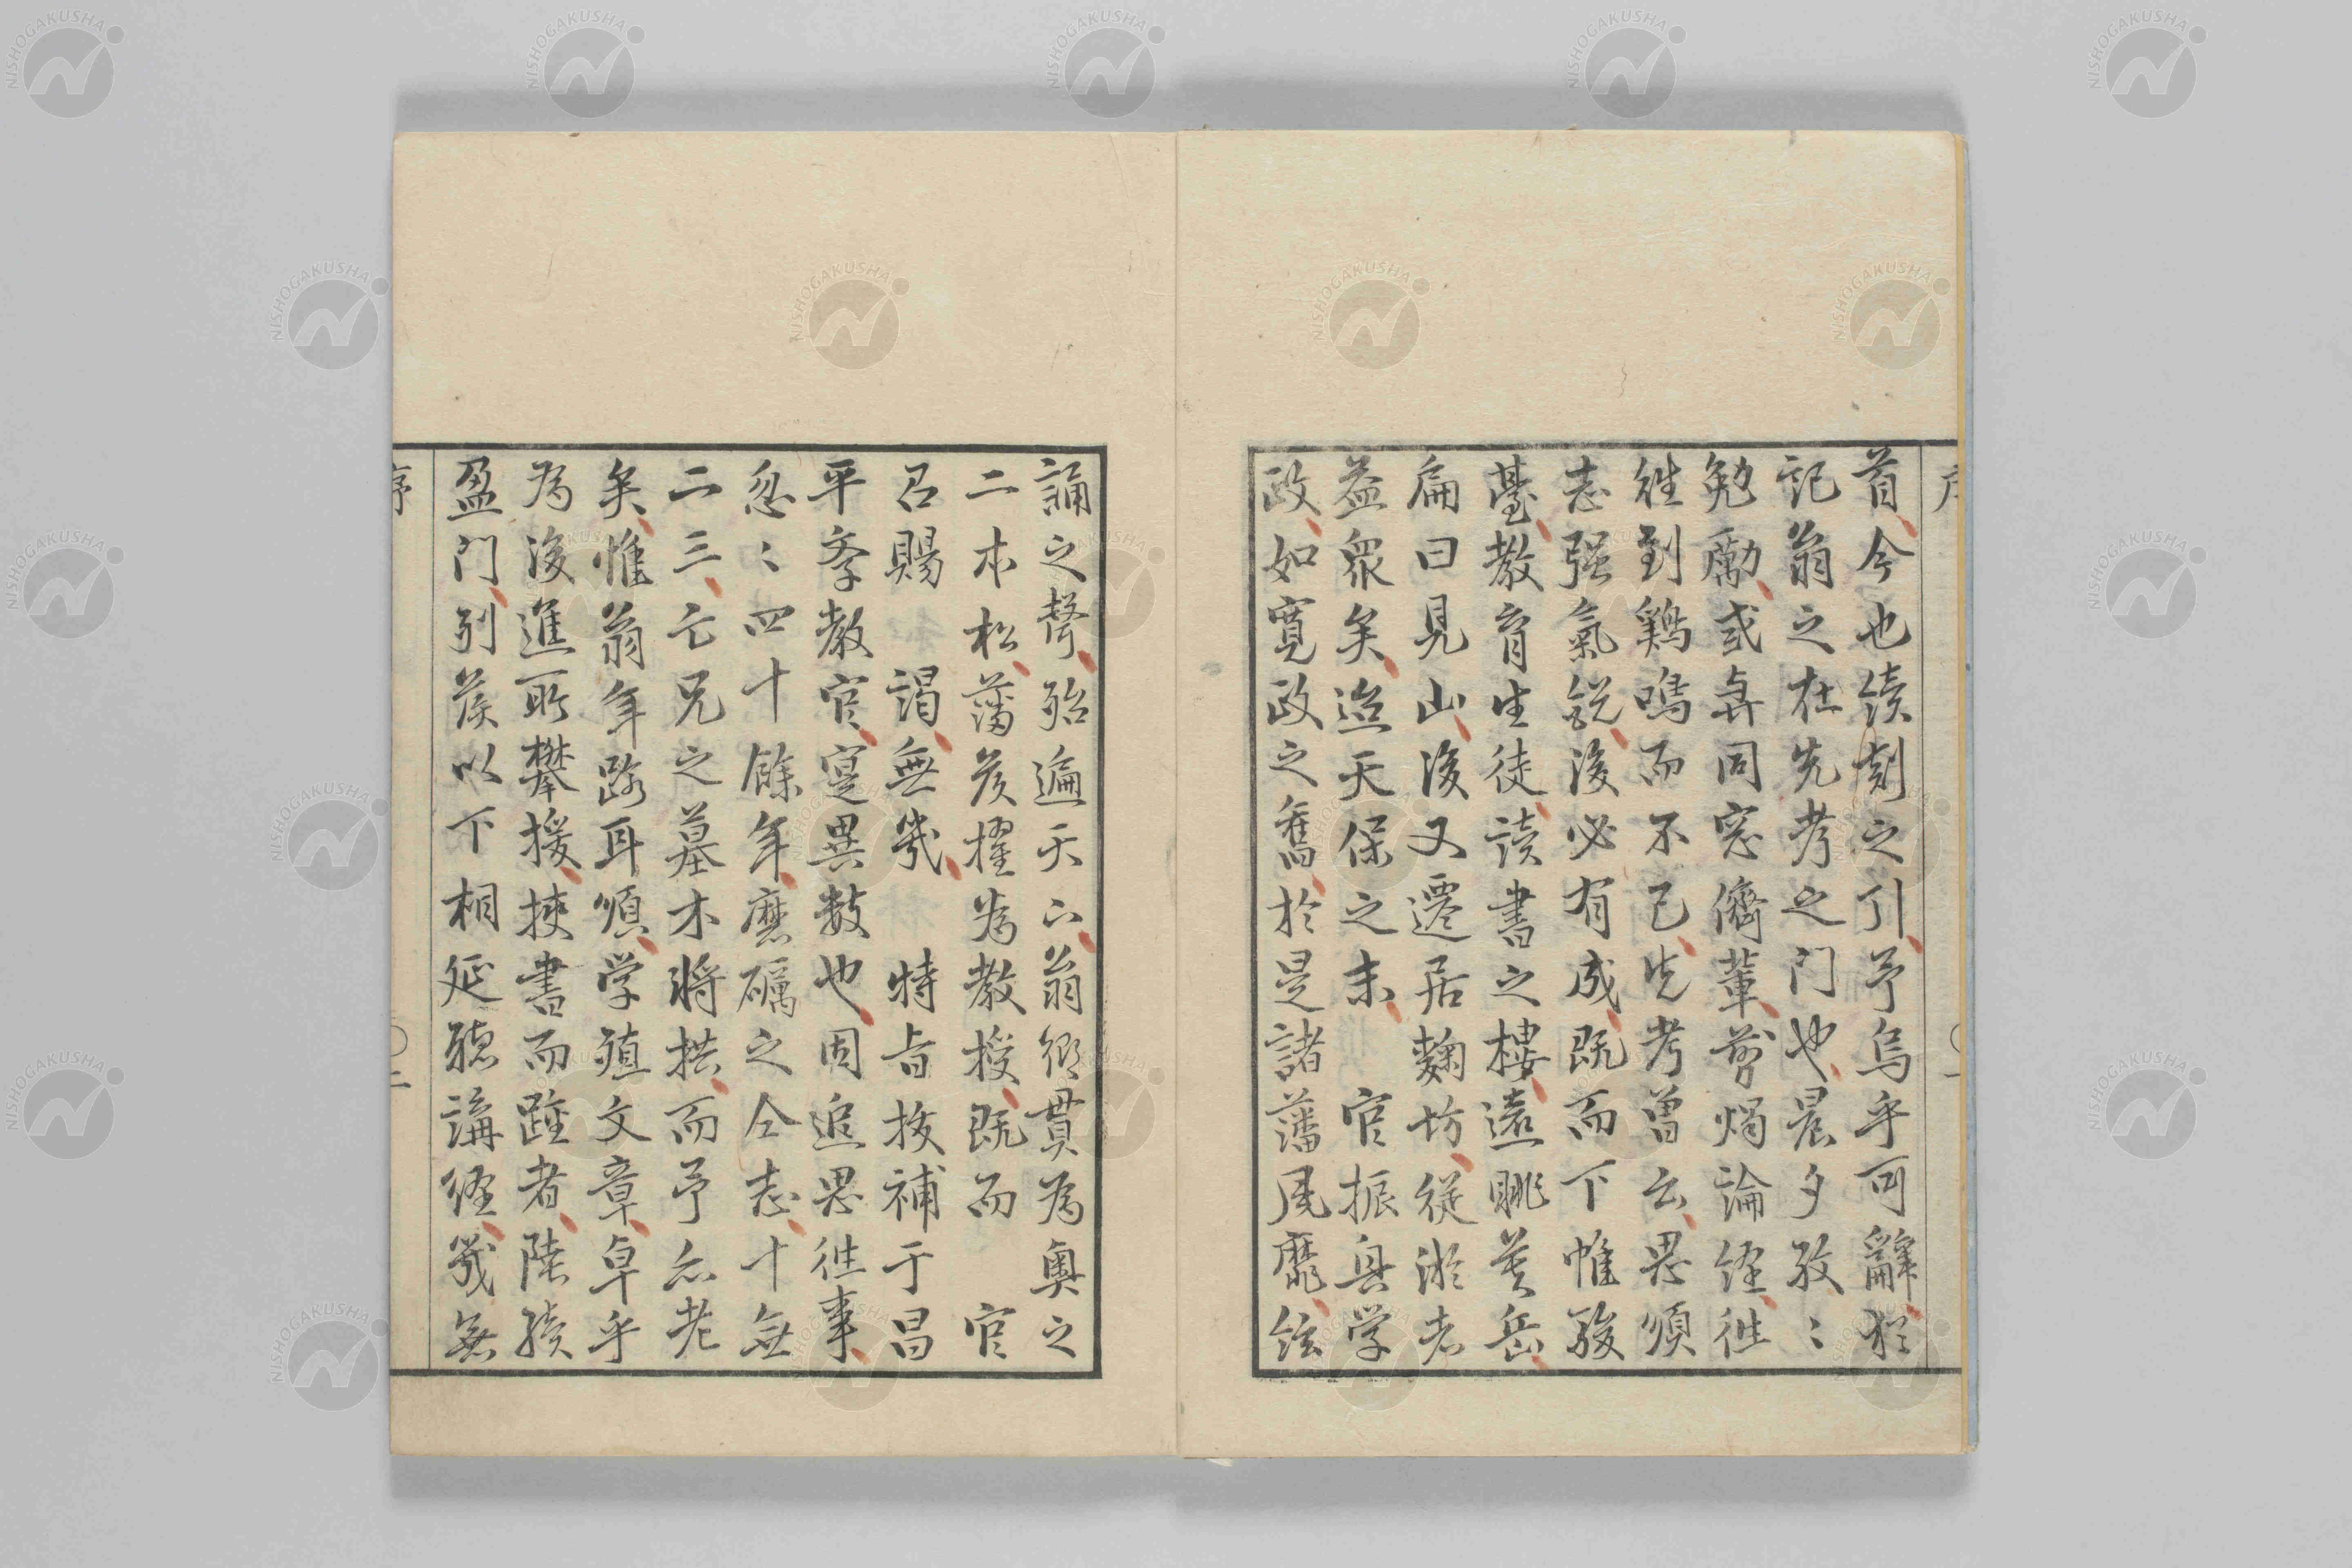 首今也續刻之引予烏乎可辭猶
記翁之在先考之門也晨夕孜〻
勉勵或與同窓儕輩剪燭論經往
往到鷄鳴而不已先考曽云思順
志强氣銳後必有成既而下帷駿
臺教育生徒讀書之樓遠眺芙岳
扁曰見山後又遷居麹坊從游者
益衆矣迨天保之末 官振興学
政如寛政之舊於是諸藩風靡絃
誦之聲殆遍天下翁鄉貫為奥之
二本松藩侯擢為教授既而 官
召賜 謁無幾 特旨抜補于昌
平黌教官寔異數也因追思往事
忽〻四十餘年磨礪之仝志十無
二三亡兄之墓木将拱而予亦老
矣惟翁年踰耳順学殖文章卓乎
為後進所攀援挾書而踵者陸續
盈門列侯以下相延聽講經幾無
序
二